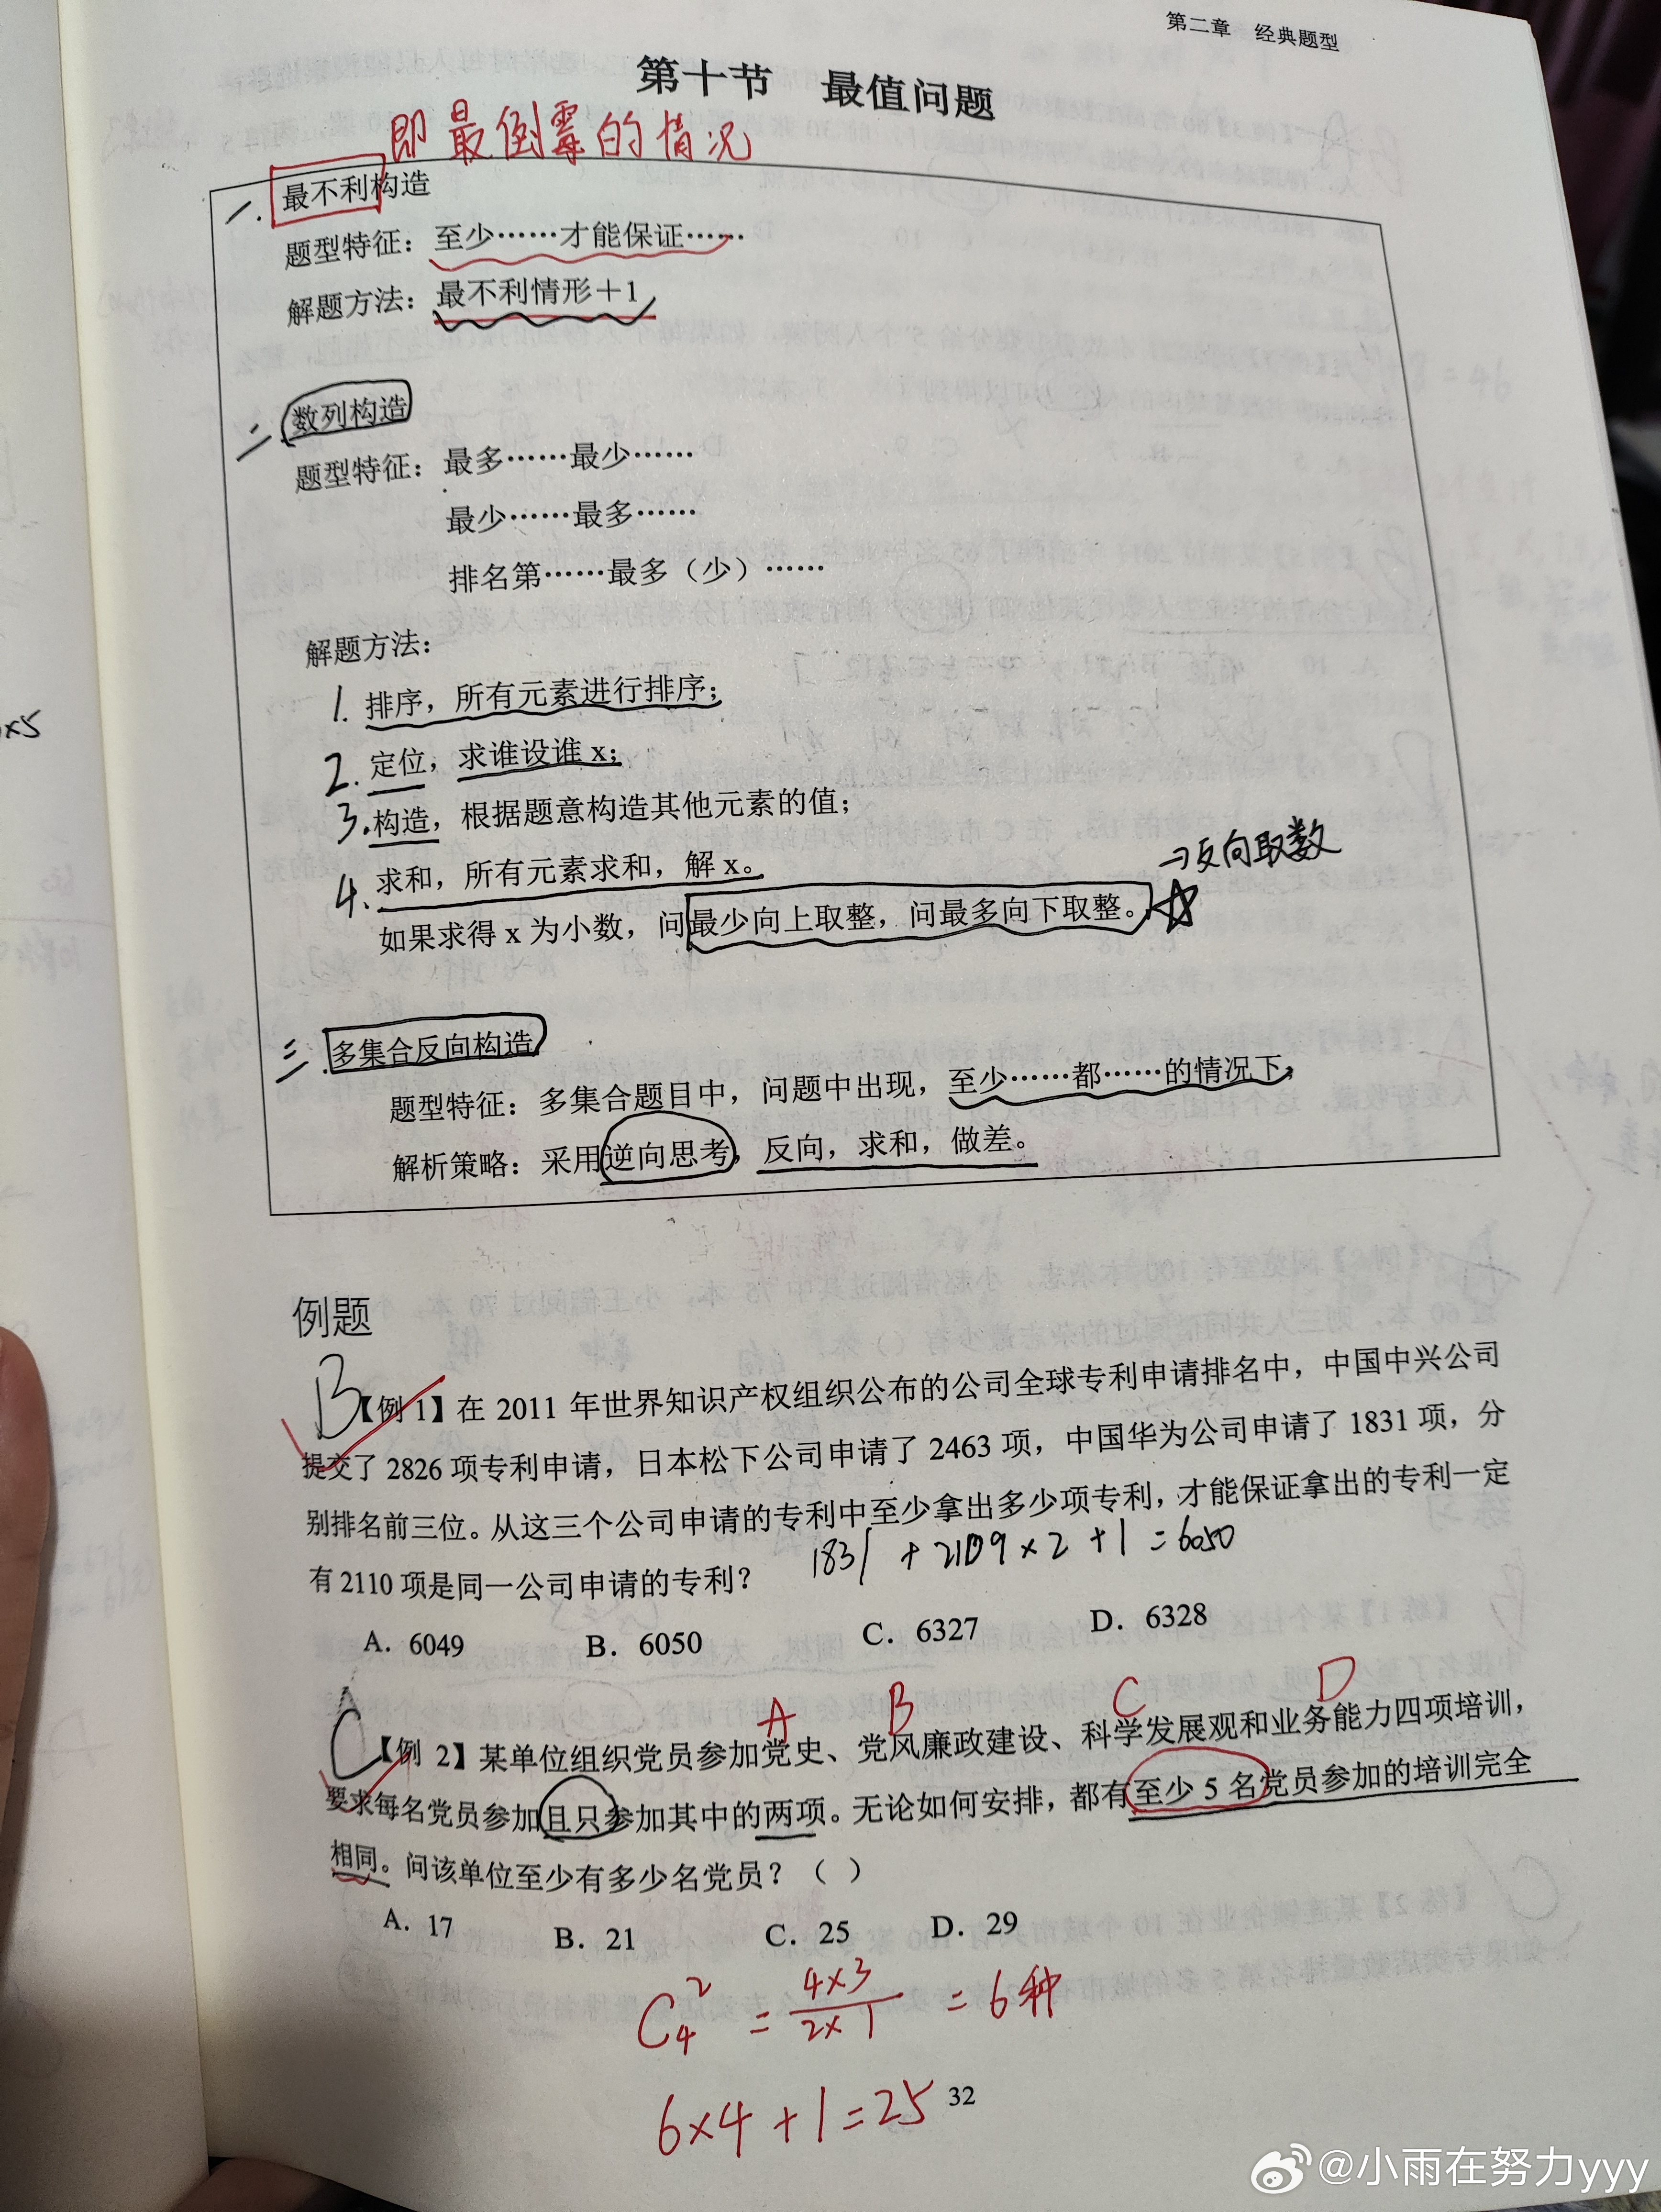 第二章 经典题型
第十节 最值问题
即最倒霉的情况
一. 最不利构造
题型特征：至少……才能保证……
解题方法：最不利情形+1
二. 数列构造
题型特征：最多……最少……
最少……最多……
排名第……最多（少）……
解题方法：
1. 排序，所有元素进行排序；
2. 定位，求谁设谁 x；
3. 构造，根据题意构造其他元素的值；
4. 求和，所有元素求和，解 x。
→反向取数
如果求得 x 为小数，问最少向上取整，问最多向下取整。☆
三. 多集合反向构造
题型特征：多集合题目中，问题中出现，至少……都……的情况下，
解析策略：采用逆向思考，反向，求和，做差。
×5
例题
B
【例 1】在 2011 年世界知识产权组织公布的公司全球专利申请排名中，中国中兴公司
提交了 2826 项专利申请，日本松下公司申请了 2463 项，中国华为公司申请了 1831 项，分
别排名前三位。从这三个公司申请的专利中至少拿出多少项专利，才能保证拿出的专利一定
有 2110 项是同一公司申请的专利？
1831 + 2109×2 +1 = 6050
A. 6049 B. 6050 C. 6327 D. 6328
A B C D
C
【例 2】某单位组织党员参加党史、党风廉政建设、科学发展观和业务能力四项培训，
要求每名党员参加且只参加其中的两项。无论如何安排，都有至少 5 名党员参加的培训完全
相同。问该单位至少有多少名党员？（ ）
A. 17 B. 21 C. 25 D. 29
C₄² = 4×3/2×1 = 6种
6×4+1=25
32
@小雨在努力yyy